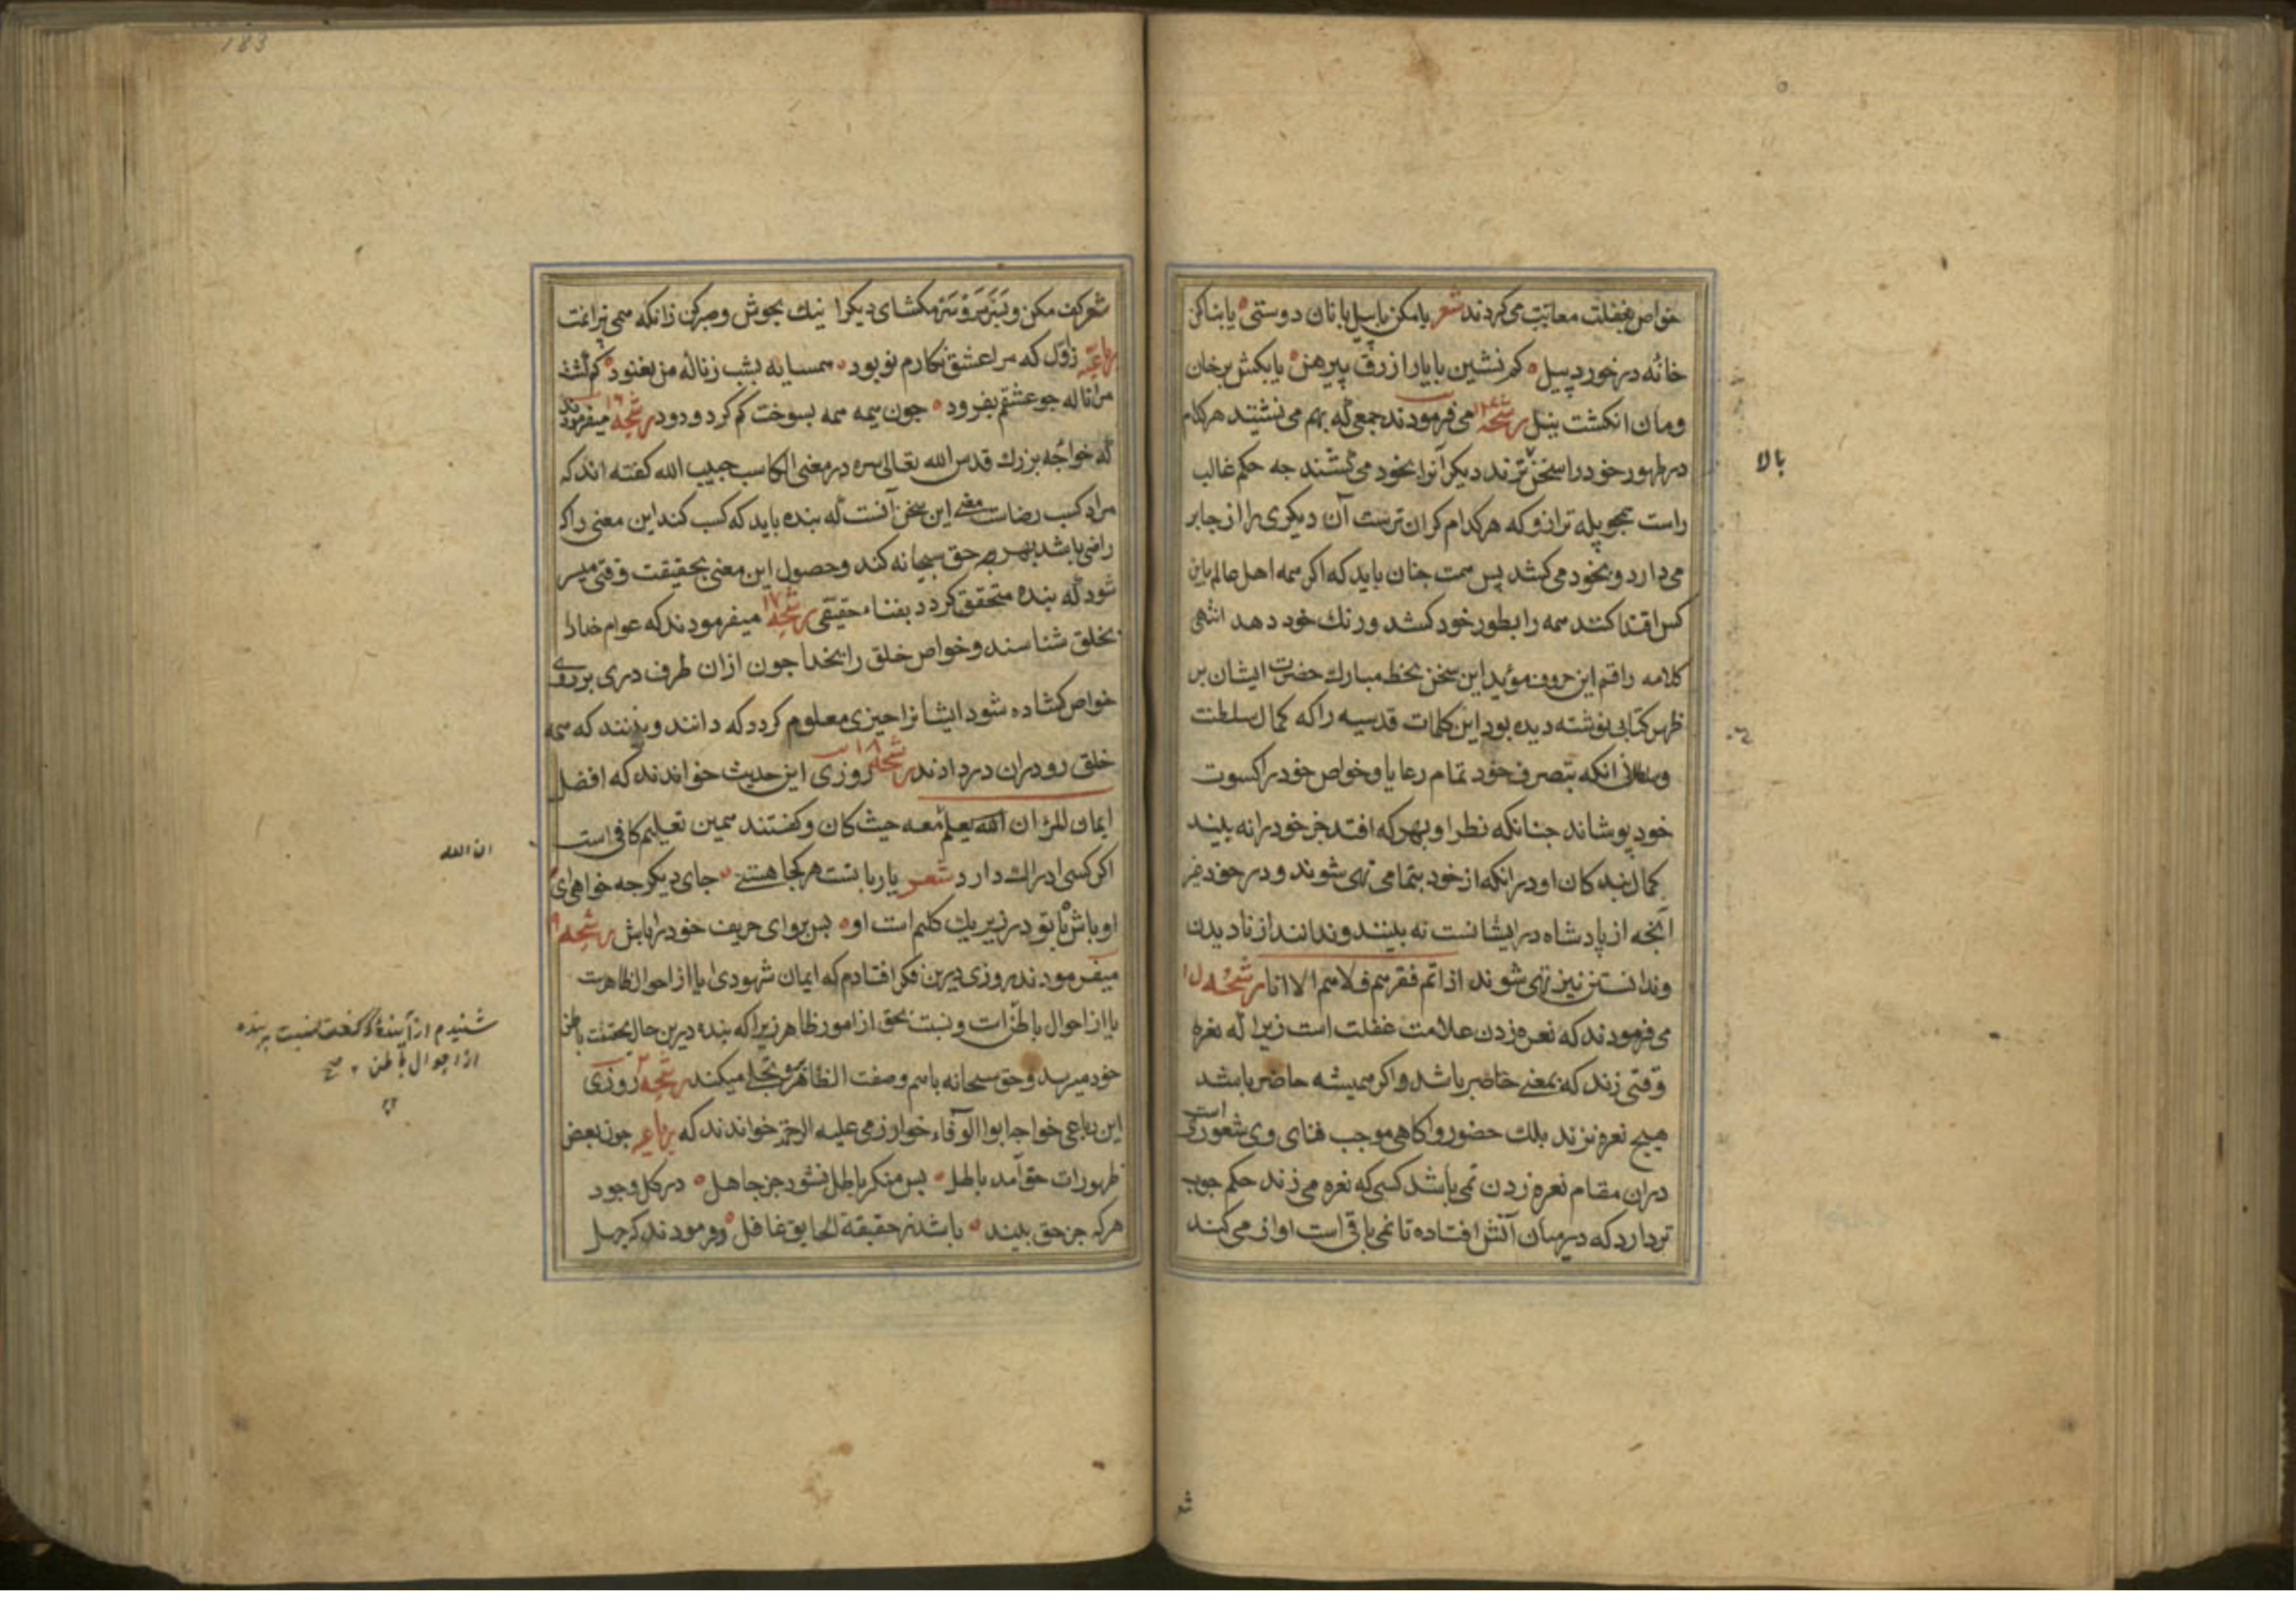 خواص بغفلت معاتبت می کردند شعر یا مکن با پیل بانان دوستی یا بنا کن
خانه در خورد پیل کم نشین با یار ازرق پیرهن یا بکش بر خان
و مان انکشت نیل رشحه می فرمودند جمعی که بهم می نشینند هر کدام
در ظهور خود راسخ ترند دیکرانرا بخود می کشند جه حکم غالب
راست همجو پله ترازو که هر کدام کران ترست آن دیکری را از جا بر
می دارد و بخود می کشد پس همت جنان باید که اکر همه اهل عالم باین
کس اقتدا کنند همه را بطور خود کشد و رنك خود دهد انتهی
کلامه راقم این حروف موید این سخن بخط مبارك حضرت ایشان بر
ظهر کتابی نوشته دیده بود این کلمات قدسیه را که کمال سلطنت
و سلطانی انکه بتصرف خود تمام رعایا و خواص خود را کسوت
خود پوشاند جنانکه نظر او بهر که افتد جز خود را نه بیند
کمال بندکان او در انکه از خود بتمامی تهی شوند و در خود غیر
آنجه از پادشاه در ایشانست نه بینند و ندانند از نادیدن
و ندانستن نیز تهی شوند اذا تم فقرهم فلا هم الا انا رشحه
می فرمودند که نعره زدن علامت غفلت است زیرا که نعره
وقتی زند که بمعنی حاضر باشد و اکر همیشه حاضر باشد
هیج نعره نزند بلك حضور و آکاهی موجب فنای وی شعوری است
دران مقام نعره زدن نمی باشد کسی که نعره می زند حکم جوب
تر دارد که در میان آتش افتاده تا نمی باقی است اوازی می کند
بالا
شعر
183
شعر کف مکن و بنز سر مکشای دیکرا نیك بجوش و صبر کن زانکه همی پزانمت
رباعیه زاول که مرا عشق نکارم نو بود همسایه بشب ز ناله من نغنود کم کشت
مرا ناله جو عشقم بفزود جون نیمه همه بسوخت کم کردد دود رشحه ۱۶ میفرمودند
که خواجه بزرك قدس الله تعالی سره در معنی الکاسب حبیب الله کفته اند که
مراد کسب رضاست معنی این سخن آنست که بنده باید که کسب کند این معنی را که
راضی باشد بهر جه حق سبحانه کند و حصول این معنی بحقیقت وقتی میسر
شود که بنده متحقق کردد بفناء حقیقی رشحه ۱۷ میفرمودند که عوام خدا را
بخلق شناسند و خواص خلق را بخدا جون ازان طرف دری بر روی
خواص کشاده شود ایشانرا جیزی معلوم کردد که دانند و بینند که همه
خلق رو دران در دادند رشحه ۱۸ روزی این حدیث خواندند که افضل
ایمان المرء ان الله یعلم معه حیث کان و کفتند همین تعلیم کافی است
اکر کسی ادراك دارد شعر یار با تست هر کجا هستی جای دیکر جه خواهی ای
اوباش با تو در زیر یك کلیم است او پس برو ای حریف خود را باش رشحه ۱۹
میفرمودند روزی درین فکر افتادم که ایمان شهودی ایا از احوال ظاهرست
یا از احوال باطن ات و نسبت بحق از امور ظاهر زیرا که بنده درین حال بحقیقت باطن
خود میرسد و حق سبحانه باسم و صفت الظاهر بر وی تجلی میکند رشحه ۲۰ روزی
این رباعی خواجه ابوالوفاء خوارزمی علیه الرحمة خواندند که رباعی جون بعض
ظهورات حق آمد باطل پس منکر باطل نشود جز جاهل در کل وجود
هرکه جز حق بیند باشد ز حقیقة الحقایق غافل و فرمودند که جهل
ان الله
شنیدم از آینده کفت نسبت ببنده
از احوال باطن ۲ صح